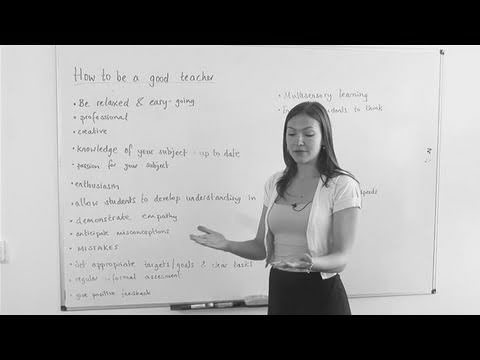 How to be a good teacher
• Be relaxed & easy-going
• professional
• creative
• knowledge of your subject - up to date
• passion for your subject
• enthusiasm
• allow students to develop understanding in
• demonstrate empathy
• anticipate misconceptions
• MISTAKES
• Set appropriate targets/goals & clear tasks
• regular assessment
• give positive feedback
• Multisensory learning
to think